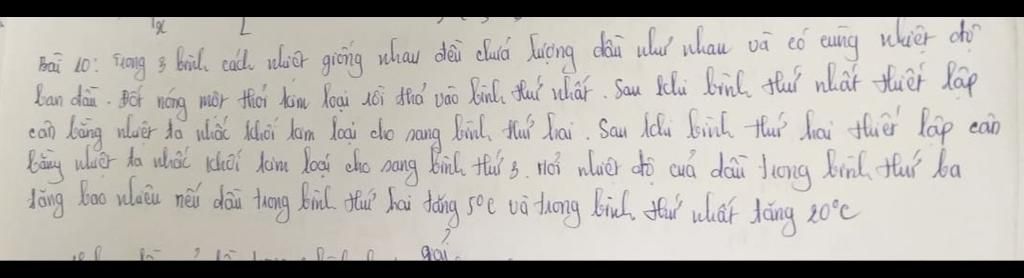 Bài 10: Trong 3 bình cách nhiệt giống nhau đều chứa lượng dầu như nhau và có cùng nhiệt độ
ban đầu. Đốt nóng một thỏi kim loại rồi thả vào bình thứ nhất. Sau khi bình thứ nhất thiết lập
cân bằng nhiệt ta nhấc khỏi kim loại cho sang bình thứ hai. Sau khi bình thứ hai thiết lập cân
bằng nhiệt ta nhấc khỏi kim loại cho sang bình thứ 3. Hỏi nhiệt độ của dầu trong bình thứ ba
tăng bao nhiêu nếu dầu trong bình thứ hai tăng 5°C và trong bình thứ nhất tăng 20°C
giải